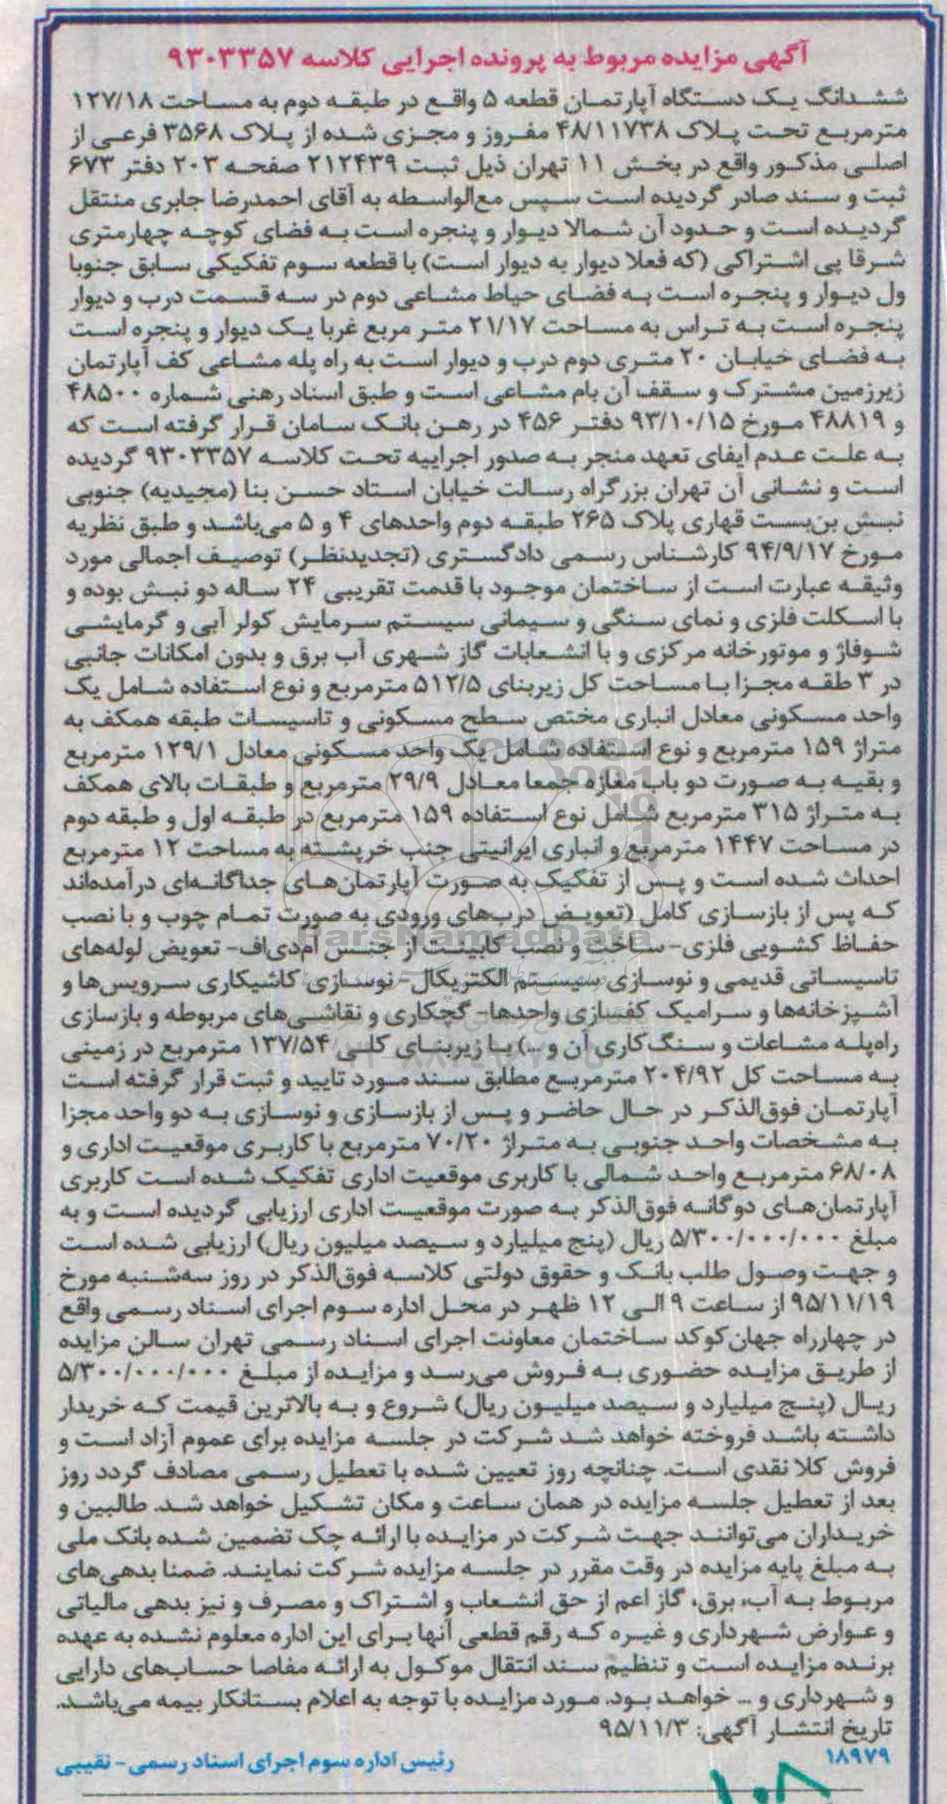 آگهی مزایده مربوط به پرونده اجرایی کلاسه ۹۳۰۳۳۵۷
ششدانگ یک دستگاه آپارتمان قطعه ۵ واقع در طبقه دوم به مساحت ۱۲۷/۱۸
مترمربع تحت پلاک ۴۸/۱۱۷۳۸ مفروز و مجزی شده از پلاک ۳۵۶۸ فرعی از
اصلی مذکور واقع در بخش ۱۱ تهران ذیل ثبت ۲۱۲۴۳۹ صفحه ۲۰۳ دفتر ۶۷۳
ثبت و سند صادر گردیده است سپس مع‌الواسطه به آقای احمدرضا جابری منتقل
گردیده است و حدود آن شمالا دیوار و پنجره است به فضای کوچه چهارمتری
شرقا پی اشتراکی (که فعلا دیوار به دیوار است) با قطعه سوم تفکیکی سابق جنوبا
ول دیوار و پنجره است به فضای حیاط مشاعی دوم در سه قسمت درب و دیوار
پنجره است به تراس به مساحت ۲۱/۱۷ متر مربع غربا یک دیوار و پنجره است
به فضای خیابان ۲۰ متری دوم درب و دیوار است به راه پله مشاعی کف آپارتمان
زیرزمین مشترک و سقف آن بام مشاعی است و طبق اسناد رهنی شماره ۴۸۵۰۰
و ۴۸۸۱۹ مورخ ۹۳/۱۰/۱۵ دفتر ۴۵۶ در رهن بانک سامان قرار گرفته است که
به علت عدم ایفای تعهد منجر به صدور اجراییه تحت کلاسه ۹۳۰۳۳۵۷ گردیده
است و نشانی آن تهران بزرگراه رسالت خیابان استاد حسن بنا (مجیدیه) جنوبی
نبش بن‌بست قهاری پلاک ۲۶۵ طبقه دوم واحدهای ۴ و ۵ می‌باشد و طبق نظریه
مورخ ۹۴/۹/۱۷ کارشناس رسمی دادگستری (تجدیدنظر) توصیف اجمالی مورد
وثیقه عبارت است از ساختمان موجود با قدمت تقریبی ۲۴ ساله دو نبش بوده و
با اسکلت فلزی و نمای سنگی و سیمانی سیستم سرمایش کولر آبی و گرمایشی
شوفاژ و موتورخانه مرکزی و با انشعابات گاز شهری آب برق و بدون امکانات جانبی
در ۳ طقه مجزا با مساحت کل زیربنای ۵۱۲/۵ مترمربع و نوع استفاده شامل یک
واحد مسکونی معادل انباری مختص سطح مسکونی و تاسیسات طبقه همکف به
متراژ ۱۵۹ مترمربع و نوع استفاده شامل یک واحد مسکونی معادل ۱۲۹/۱ مترمربع
و بقیه به صورت دو باب مغازه جمعا معادل ۲۹/۹ مترمربع و طبقات بالای همکف
به متراژ ۳۱۵ مترمربع شامل نوع استفاده ۱۵۹ مترمربع در طبقه اول و طبقه دوم
در مساحت ۱۴۴۷ مترمربع و انباری ایرانیتی جنب خرپشته به مساحت ۱۲ مترمربع
احداث شده است و پس از تفکیک به صورت آپارتمان‌های جداگانه‌ای درآمده‌اند
که پس از بازسازی کامل (تعویض درب‌های ورودی به صورت تمام چوب و با نصب
حفاظ کشویی فلزی- ساخت و نصب کابینت از جنس ام‌دی‌اف- تعویض لوله‌های
تاسیساتی قدیمی و نوسازی سیستم الکتریکال- نوسازی کاشیکاری سرویس‌ها و
آشپزخانه‌ها و سرامیک کفسازی واحدها- گچکاری و نقاشی‌های مربوطه و بازسازی
راه‌پله مشاعات و سنگ‌کاری آن و ...) با زیربنای کلی ۱۳۷/۵۴ مترمربع در زمینی
به مساحت کل ۲۰۴/۹۲ مترمربع مطابق سند مورد تایید و ثبت قرار گرفته است
آپارتمان فوق‌الذکر در حال حاضر و پس از بازسازی و نوسازی به دو واحد مجزا
به مشخصات واحد جنوبی به متراژ ۷۰/۲۰ مترمربع با کاربری موقعیت اداری و
۶۸/۰۸ مترمربع واحد شمالی با کاربری موقعیت اداری تفکیک شده است کاربری
آپارتمان‌های دوگانه فوق‌الذکر به صورت موقعیت اداری ارزیابی گردیده است و به
مبلغ ۵/۳۰۰/۰۰۰/۰۰۰ ریال (پنج میلیارد و سیصد میلیون ریال) ارزیابی شده است
و جهت وصول طلب بانک و حقوق دولتی کلاسه فوق‌الذکر در روز سه‌شنبه مورخ
۹۵/۱۱/۱۹ از ساعت ۹ الی ۱۲ ظهر در محل اداره سوم اجرای اسناد رسمی واقع
در چهارراه جهان‌کوکد ساختمان معاونت اجرای اسناد رسمی تهران سالن مزایده
از طریق مزایده حضوری به فروش می‌رسد و مزایده از مبلغ ۵/۳۰۰/۰۰۰/۰۰۰
ریال (پنج میلیارد و سیصد میلیون ریال) شروع و به بالاترین قیمت که خریدار
داشته باشد فروخته خواهد شد شرکت در جلسه مزایده برای عموم آزاد است و
فروش کلا نقدی است. چنانچه روز تعیین شده با تعطیل رسمی مصادف گردد روز
بعد از تعطیل جلسه مزایده در همان ساعت و مکان تشکیل خواهد شد. طالبین و
خریداران می‌توانند جهت شرکت در مزایده با ارائه چک تضمین شده بانک ملی
به مبلغ پایه مزایده در وقت مقرر در جلسه مزایده شرکت نمایند. ضمنا بدهی‌های
مربوط به آب، برق، گاز اعم از حق انشعاب و اشتراک و مصرف و نیز بدهی مالیاتی
و عوارض شهرداری و غیره که رقم قطعی آنها برای این اداره معلوم نشده به عهده
برنده مزایده است و تنظیم سند انتقال موکول به ارائه مفاصا حساب‌های دارایی
و شهرداری و ... خواهد بود. مورد مزایده با توجه به اعلام بستانکار بیمه می‌باشد.
تاریخ انتشار آگهی: ۹۵/۱۱/۳
۱۸۹۷۹ رئیس اداره سوم اجرای اسناد رسمی- نقیبی
۱۰۸
ParsNamadData